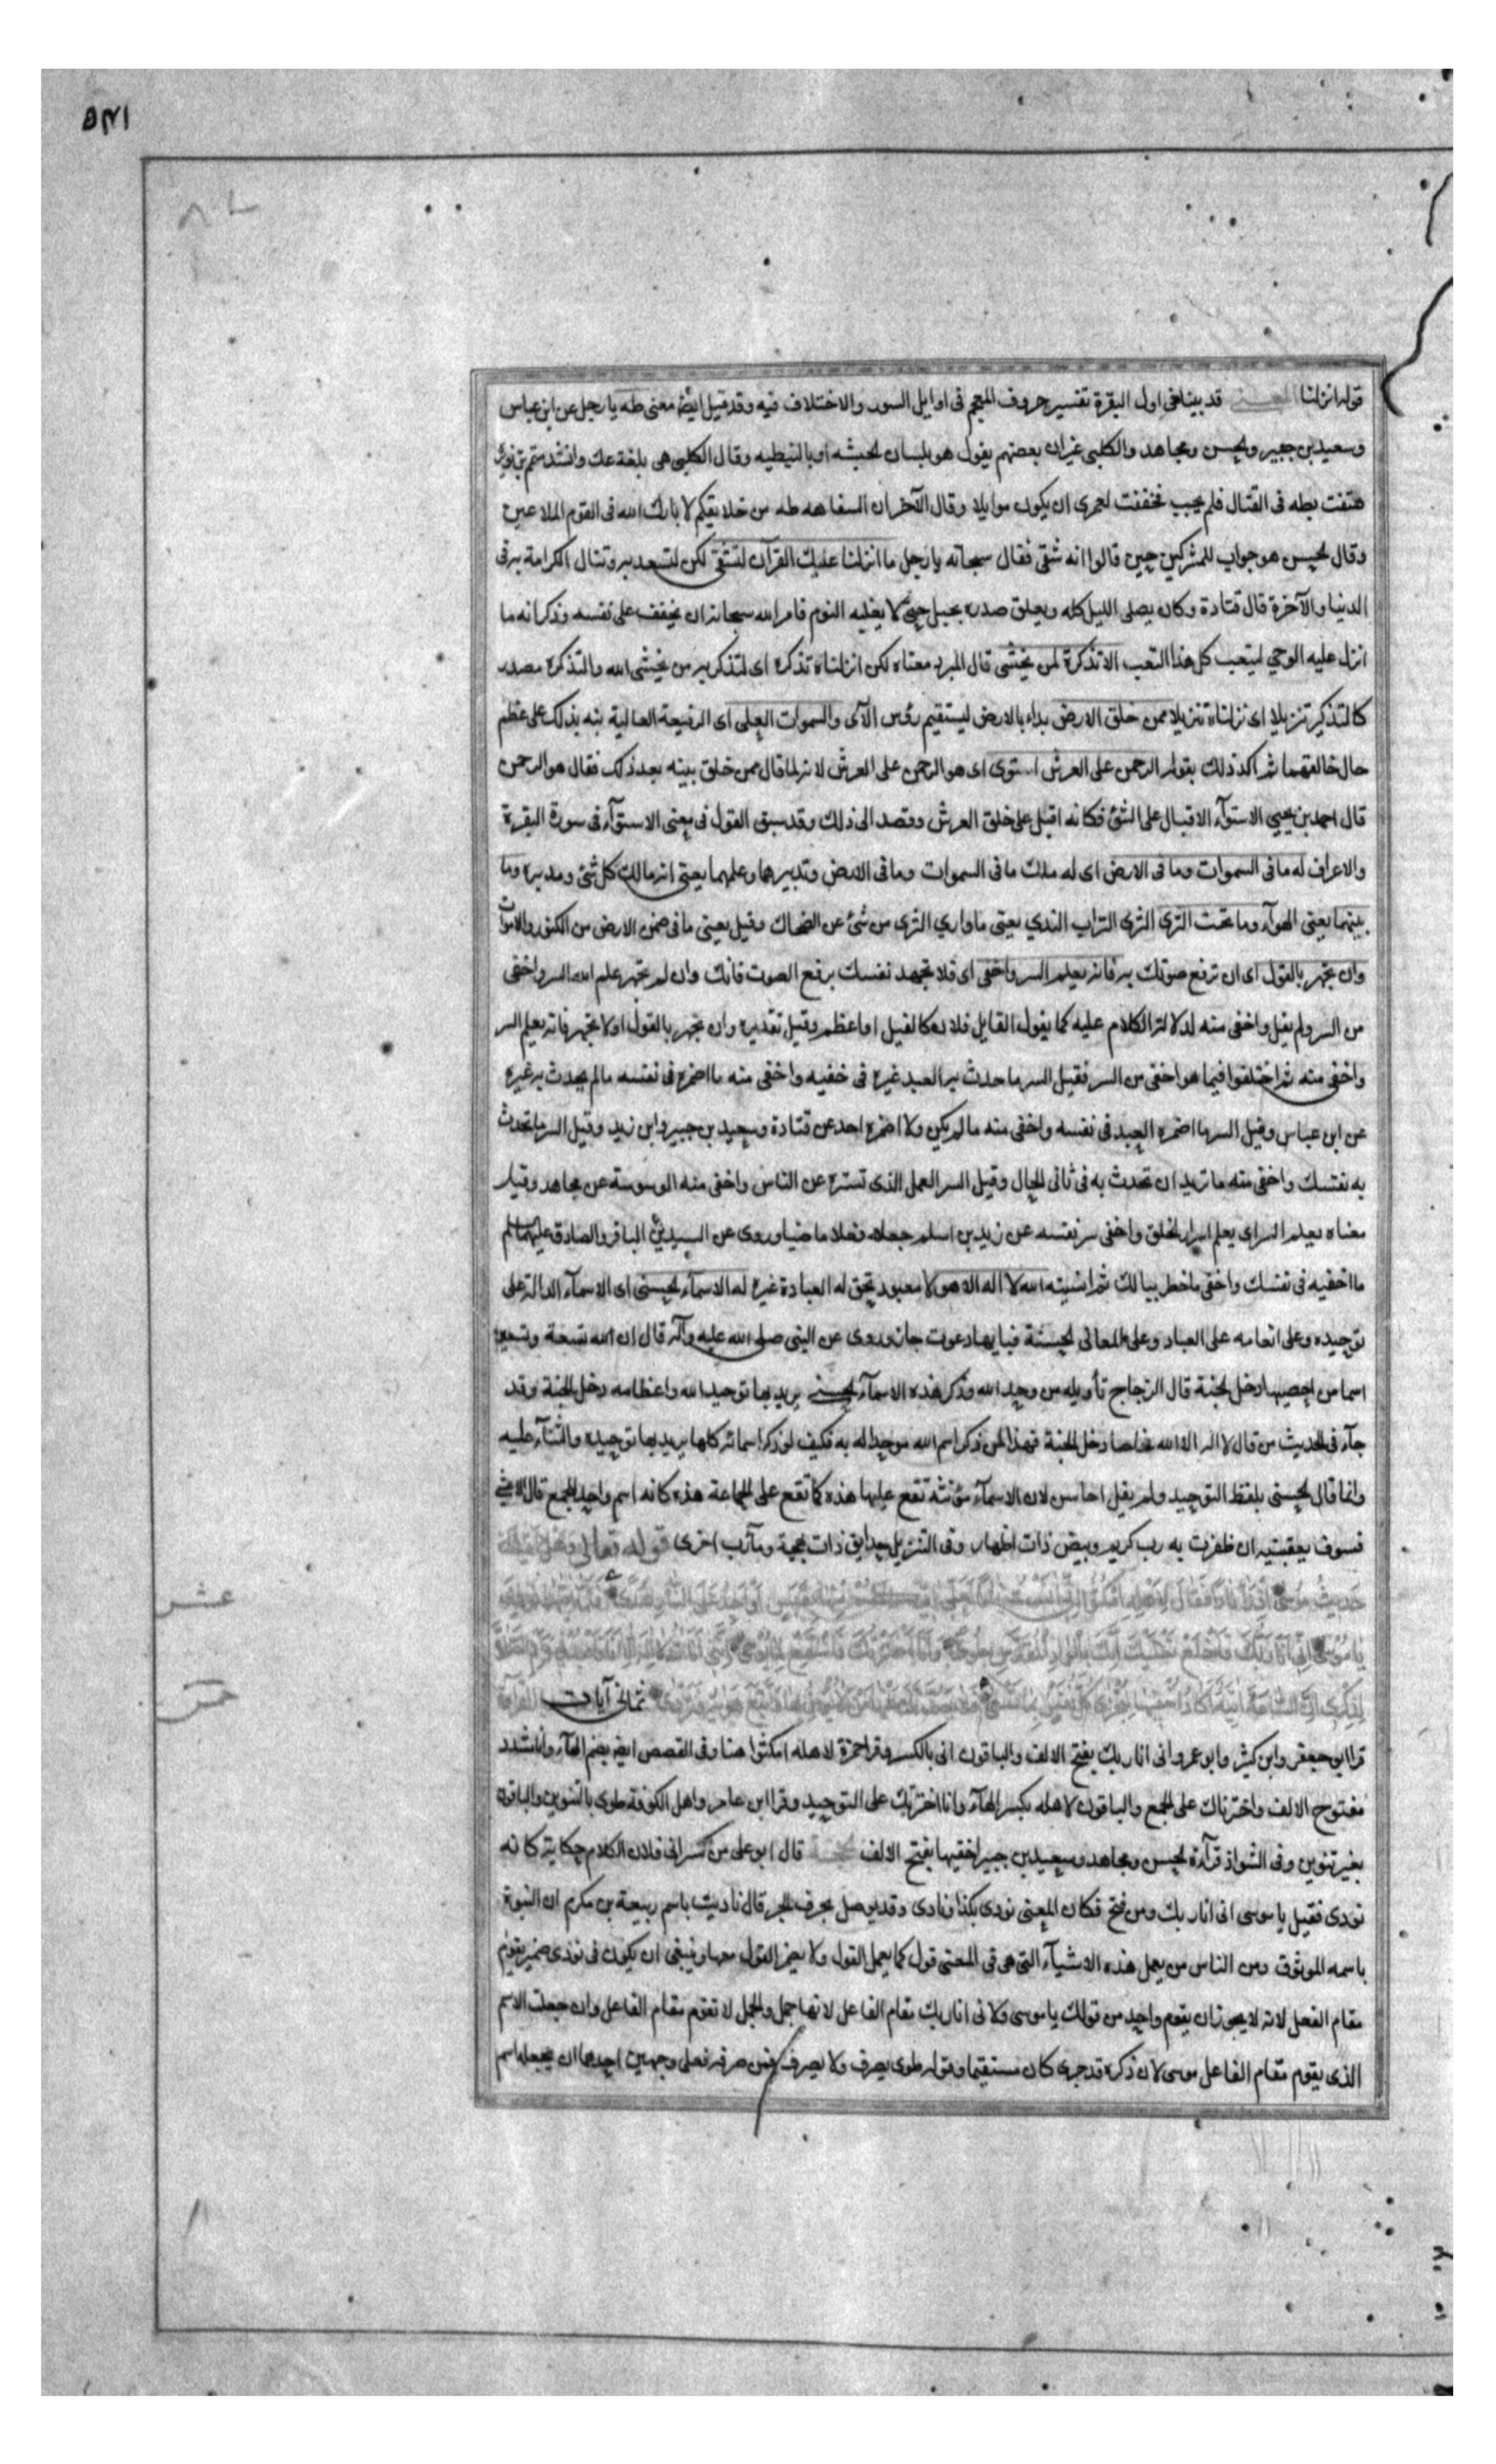 قوله انزلنا المعنى قد بينا فى اول البقرة تفسير حروف المعجم فى اوايل السور والاختلاف فيه وقد قيل ايضا معنى طه يا رجل عن ابن عباس
وسعيد بن جبير والحسن ومجاهد والكلبى غير ان بعضهم يقول هو بلسان الحبشه او بالنبطيه وقال الكلبى هى بلغة عك وانشد متمم بن نويرة
هتفت بطه فى القتال فلم يجب فخففت لعمرى ان يكون موايلا وقال الآخر ان السفاهه طه من خلايقكم لا بارك الله فى القوم الملاعين
وقال الحسن هو جواب للمشركين حين قالوا انه شقى فقال سبحانه يا رجل ما انزلنا عليك القرآن لتشقى لكن لتسعد به وتنال الكرامة به فى
الدنيا والآخرة قال قتادة وكان يصلى الليل كله ويعلق صدره بحبل حتى لا يغلبه النوم فامر الله سبحانه ان يخفف على نفسه وذكر انه ما
انزل عليه الوحى ليتعب كل هذا التعب الا تذكرة لمن يخشى قال المبرد معناه لكن انزلناه تذكرة اى لتذكر به من يخشى الله والتذكرة مصدر
كالتذكير تنزيلا اى نزلناه تنزيلا ممن خلق الارض بداء بالارض ليستقيم رؤس الآى والسموات العلى اى الرفيعة العالية نبه بذلك على عظم
حال خالقهما ثم اكد ذلك بقوله الرحمن على العرش استوى اى هو الرحمن على العرش لانه لما قال ممن خلق بينه بعد ذلك فقال هو الرحمن
قال احمد بن يحيى الاستوآء الاقبال على الشئ فكانه اقبل على خلق العرش وقصد الى ذلك وقد سبق القول فى معنى الاستوآء فى سورة البقرة
والاعراف له ما فى السموات وما فى الارض اى له ملك ما فى السموات وما فى الارض وتدبيرها وعلمها يعنى انه مالك كل شئ ومدبره وما
بينهما يعنى الهوآء وما تحت الثرى الثرى التراب الندي يعنى ما وارى الثرى من شئ عن الضحاك وقيل يعنى ما فى ضمن الارض من الكنوز والاموات
وان تجهر بالقول اى ان ترفع صوتك به فانه يعلم السر واخفى اى فلا تجهد نفسك برفع الصوت فانك وان لم تجهر علم الله السر واخفى
من السر ولم يقل واخفى منه لدلالة الكلام عليه كما يقول القايل فلان كالفيل او اعظم وقيل تقديره وان تجهر بالقول او لا تجهر فانه يعلم السر
واخفى منه ثم اختلفوا فيما هو اخفى من السر فقيل السر ما حدث به العبد غيره فى خفيه واخفى منه ما اضمره فى نفسه مالم يحدث به غيره
عن ابن عباس وقيل السر ما اضمره العبد فى نفسه واخفى منه مالم يكن ولا اضمره احد عن قتادة وسعيد بن جبير وابن زيد وقيل السر ما تحدث
به نفسك واخفى منه ما تريد ان تحدث به فى ثانى الحال وقيل السر العمل الذى تستره عن الناس واخفى منه الوسوسة عن مجاهد وقيل
معناه يعلم السر اى يعلم اسرار الخلق واخفى سر نفسه عن زيد بن اسلم جعله فعلا ماضيا وروى عن السيدين الباقر والصادق عليهما السلم
ما اخفيه فى نفسك واخفى ما خطر ببالك ثم انسيته الله لا اله الا هو لا معبود تحق له العبادة غيره له الاسمآء الحسنى اى الاسمآء الدالة على
توحيده وعلى انعامه على العباد وعلى المعانى الحسنة فبايها دعوت جاز وروى عن النبى صلى الله عليه وآله قال ان الله تسعة وتسعين
اسما من احصيها دخل الجنة قال الزجاج تأويله من وحد الله وذكر هذه الاسمآء الحسنى يريد بها توحيد الله واعظامه دخل الجنة وقد
جآء فى الحديث من قال لا اله الا الله مخلصا دخل الجنة فهذا لمن ذكر اسم الله موحدا له به فكيف لو ذكر اسمائه كلها يريد بها توحيده والثنآء عليه
وانما قال الحسنى بلفظ التوحيد ولم يقل احاسن لان الاسمآء مؤنثه تقع عليها هذه كما تقع على الجماعة هذه كانه اسم واحد للجمع قال الاعشى
فسوف يعقبنيه ان ظفرت به رب كريم وبيض ذات اطهار وفى التنزيل حدايق ذات بهجة ومآرب اخرى قوله تعالى وهل اتيك
حديث موسى اذ رأى نارا فقال لاهله امكثوا انى آنست نارا لعلى آتيكم منها بقبس او اجد على النار هدى فلما اتيها نودى
يا موسى انى انا ربك فاخلع نعليك انك بالواد المقدس طوى وانا اخترتك فاستمع لما يوحى اننى انا الله لا اله الا انا فاعبدنى واقم الصلاة
لذكرى ان الساعة آتية اكاد اخفيها لتجزى كل نفس بما تسعى فلا يصدنك عنها من لا يؤمن بها واتبع هويه فتردى ثمانى آيات القراءة
قرا ابو جعفر وابن كثير وابو عمرو انى انا ربك بفتح الالف والباقون انى بالكسر وقرا حمزة لاهله امكثوا هنا وفى القصص ايضا بضم الهآء وانا مشدد
مفتوح الالف واخترناك على الجمع والباقون لاهله بكسر الهآء وانا اخترتك على التوحيد وقرا ابن عامر واهل الكوفة طوى بالتنوين والباقون
بغير تنوين وفى الشواذ قرآءة الحسن ومجاهد وسعيد بن جبير اخفيها بفتح الالف الحجة قال ابو على من كسر انى فلان الكلام حكاية كانه
نودى فقيل يا موسى انى انا ربك ومن فتح فكان المعنى نودى بكذا ونادى وقد يوصل بحرف الجر قال ناديت باسم ربيعة بن مكرم ان النبوة
باسمه الموثوق ومن الناس من يعمل هذه الاشيآء التى هى فى المعنى قول كما يعمل القول ولا يضمر القول معها وينبغى ان يكون فى نودى ضمير يقوم
مقام الفعل لانه لا يجوز ان يقوم واحد من قولك يا موسى ولا نى انا ربك مقام الفاعل لانها جمل والجمل لا تقوم مقام الفاعل وان جعلت الاسم
الذى يقوم مقام الفاعل موسى لان ذكره قد جرى كان مستقيما وقوله طوى يصرف ولا يصرف فمن صرفه فعلى وجهين احدهما ان يجعله اسم
عشر